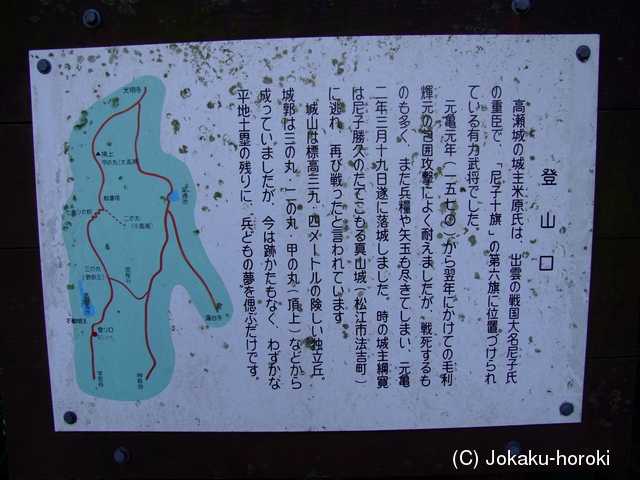 登山口
高瀬城の城主米原氏は、出雲の戦国大名尼子氏
の重臣で、「尼子十旗」の第六旗に位置づけられ
ている有力武将でした。
元亀元年（一五七〇）から翌年にかけての毛利
輝元の包囲攻撃によく耐えましたが、戦死するも
のも多く、また兵糧や矢玉も尽きてしまい、元亀
二年三月十九日遂に落城しました。時の城主綱寛
は尼子勝久のたてこもる真山城（松江市法吉町）
に逃れ、再び戦ったと言われています。
城山は標高三九〇四メートルの険しい独立丘。
城郭は三の丸、二の丸、甲の丸（頂上）などから
成っていましたが、今は跡かたもなく、わずかな
平地土塁の残りに、兵どもの夢を偲ぶだけです。
光明寺
頂上
甲の丸(大高瀬)
駄置場
七曲りの駅
二の丸
(小高瀬)
三の丸
(鉄砲立)
登り口
蓮台寺
宇屋谷
神庭谷
(C) Jokaku-horoki